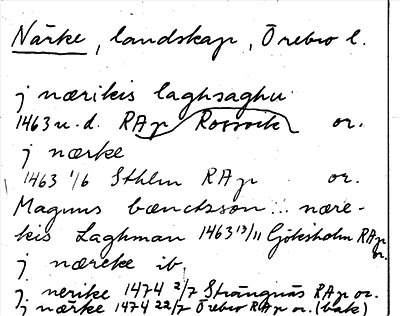 Närke, landskap, Örebro l.
j nærikis laghsaghu
1463 u.d. RAp Rossvik or.
j nærke
1463 1/6 Sthlm RAp or.
Magnus bænctsson ... nære-
kis Laghman 1463 13/11 Gjöksholm RAp or.
j næreke ib.
j nerike 1474 2/7 Strängnäs RAp or.
j nærke 1474 22/7 Örebro RAp or. (bak)